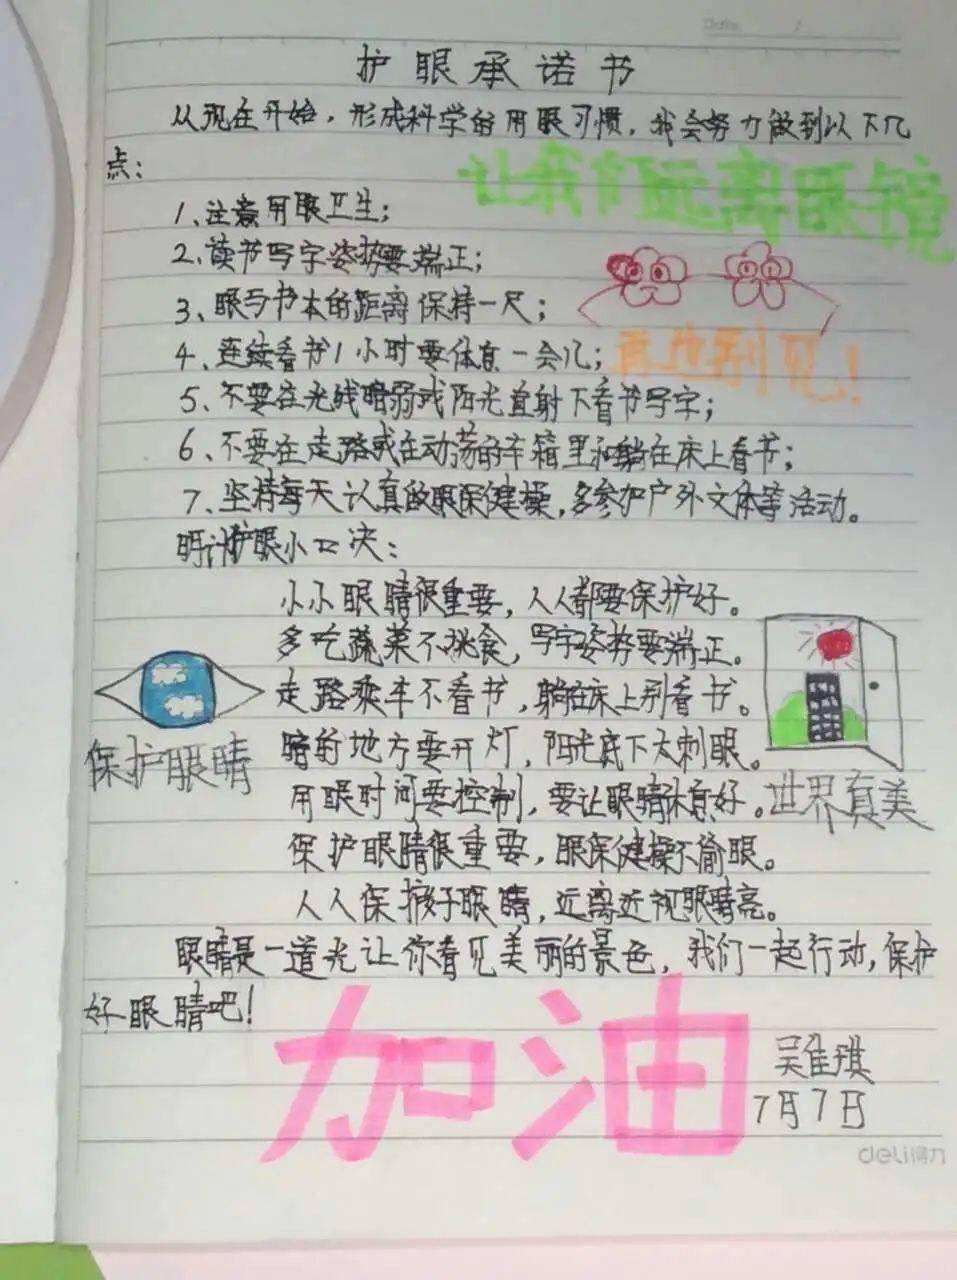 Date    /
护眼承诺书
从现在开始，形成科学的用眼习惯，我会努力做到以下几
点：
让我们远离眼镜
1、注意用眼卫生；
2、读书写字姿势要端正；
3、眼与书本的距离保持一尺；
4、连续看书1小时要休息一会儿；
再也别见！
5、不要在光线暗弱或阳光直射下看书写字；
6、不要在走路或在动荡的车箱里和躺在床上看书；
7、坚持每天认真做眼保健操，多参加户外文体等活动。
明计护眼小口决：
小小眼睛很重要，人人都要保护好。
多吃蔬菜不挑食，写字姿势要端正。
走路乘车不看书，躺在床上别看书。
保护眼睛
暗的地方要开灯，阳光底下太刺眼。
用眼时间要控制，要让眼睛休息好。
世界真美
保护眼睛很重要，眼保健操不偷眼。
人人保护好眼睛，远离近视眼睛亮。
眼睛是一道光让你看见美丽的景色，我们一起行动，保护
好眼睛吧！
加油
吴佳琪
7月7日
deli得力